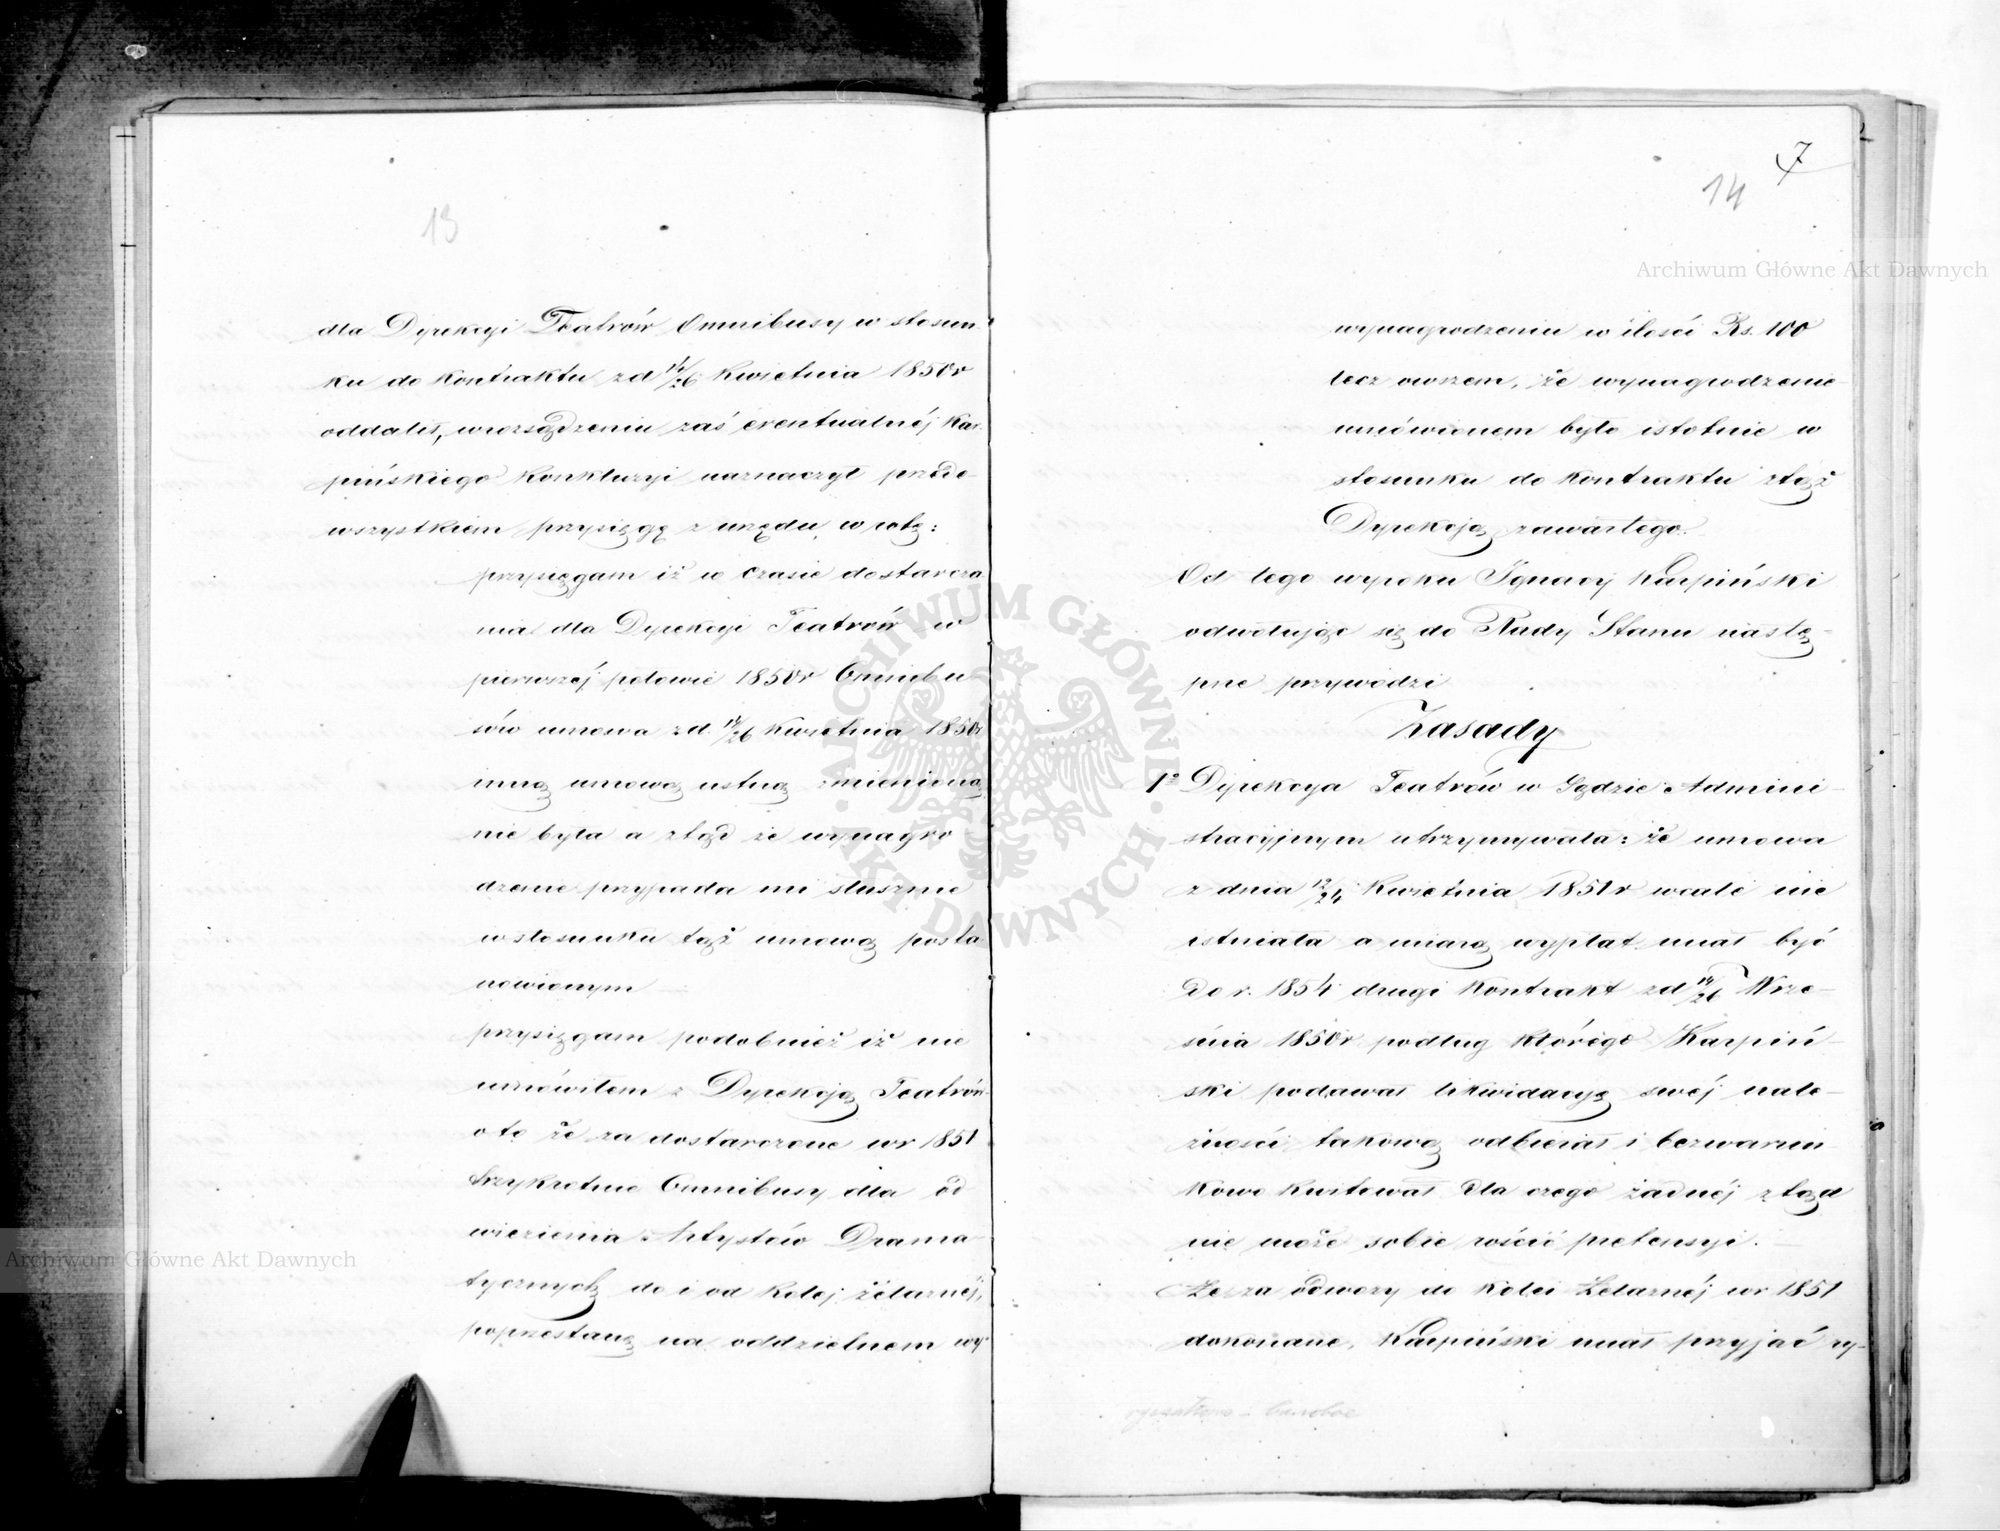 13
dla Dyrekcyi Teatrów Omnibusy w stosun
ku do Kontraktu z d 14/26 Kwietnia 1850 r
oddalił, w rozsądzeniu zaś eventualnéj Kar
pińskiego Konkluzyi naznaczył przede
wszystkiem przysięgę z urzędu, w rotę:
przysięgam iż w czasie dostarcza
nia dla Dyrekcyi Teatrów w
pierwszéj połowie 1850 r Omnibu
sów umowa z d. 14/26 Kwietnia 1850 r
inną umową ustną zmienioną
nie była a ztąd że wynagro
dzenie przypada mi słusznie
w stosunku tąż umową posta
nowionym
przysięgam podobnież iż nie
umówiłem z Dyrekcją Teatrów
o to że za dostarczone w r 1851
trzykrotnie Omnibusy dla od
wiezienia Artystów Drama
tycznych do i od Kolej żelaznéj,
poprzestanę na oddzielnem wy
7
14
wynagrodzeniu w ilości Rs. 100
lecz owszem, że wynagrodzenie
umówionem było istotnie w
stosunku do Kontraktu z tąż
Dyrekcją zawartego.
Od tego wyroku Ignacy Karpiński
odwołując się do Rady Stanu nastę-
pne przywodzi
Zasady
1° Dyrekcya Teatrów w Sądzie Admini
stracyjnym utrzymywała: że umowa
z dnia 12/24 Kwietnia 1851 r wcale nie
istniała a miarą wypłat miał być
do r. 1854 drugi Kontrakt z d 14/26 Wrze-
śnia 1850 r podług którego Karpiń
ski podawał likwidacyę swéj nale-
żności takową odbierał i bezwarun
kowo kwitował dla czego żadnéj ztąd
nie może sobie rościć pretensyi.
Że za odwozy do Kolei Żelaznéj w r 1851
dokonane, Karpiński miał przyjąć ry-
Archiwum Główne Akt Dawnych
Archiwum Główne Akt Dawnych
ARCHIWUM GŁÓWNE AKT DAWNYCH